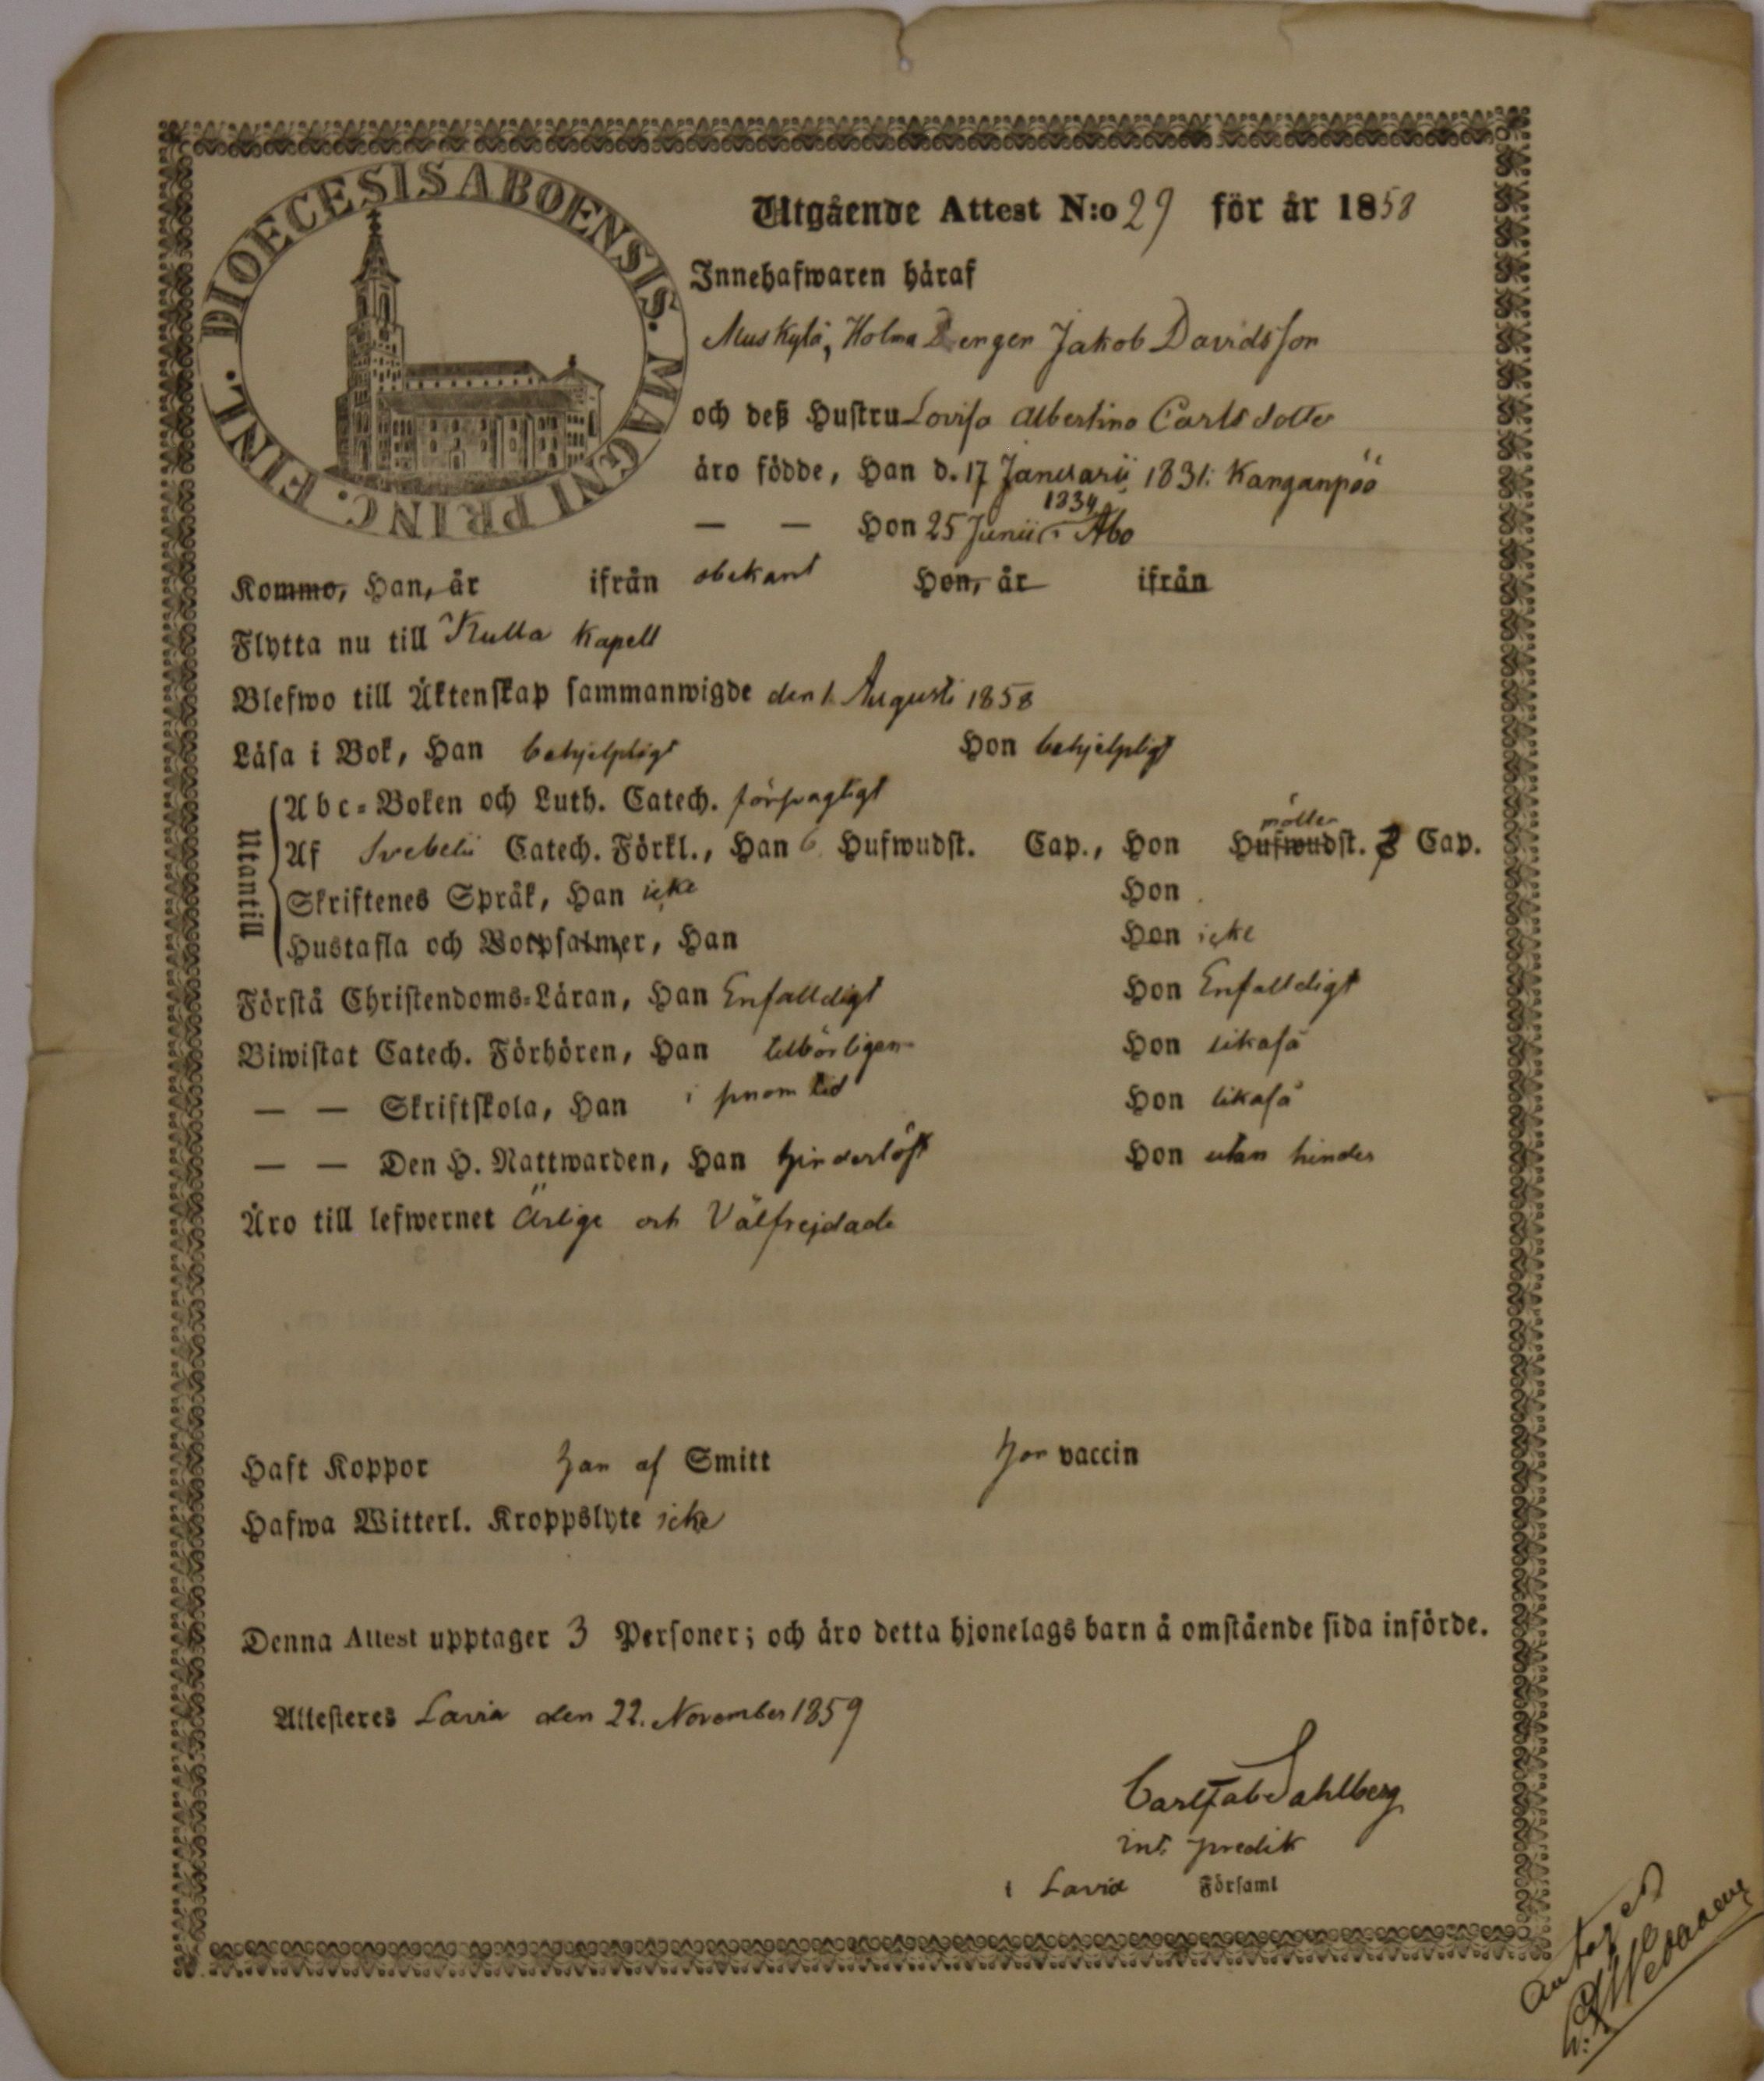 DIOECESIS ABOENSIS. MAGNI PRINC. FINL.
Utgående Attest N:o 29 för år 1858
Innehafwaren häraf
Muskylä, Holma Drengen Jakob Davidsson
och deß Hustru Lovisa Albertina Carlsdotter
äro födde, Han d. 17 Januarii 1831. Kanganpää
— — Hon 25 Junii 1834 Åbo
Kommo, Han, år ifrån obekant Hon, år ifrån
Flytta nu till Kulla Kapell
Blefwo till Äktenskap sammanwigde den 1. Augusti 1858
Läsa i Bok, Han behjelpligt Hon behjelpligt
Utantill
Abc-Boken och Luth. Catech. försvagligt
Af Svebelii Catech. Förkl., Han 6 Hufwudst. Cap., Hon Hufwudst. Cap.
Skriftenes Språk, Han icke Hon
Hustafla och Botpsalmer, Han Hon icke
Förstå Christendoms-Läran, Han Enfalldigt Hon Enfalldigt
Biwistat Catech. Förhören, Han tillbörligen Hon likaså
— — Skriftskola, Han i sinom tid Hon likaså
— — Den H. Nattwarden, Han hinderlöst Hon utan hinder
Äro till lefwernet Ärlige och Välfrejdade
Haft Koppor han af Smitt hon vaccin
Hafwa Witterl. Kroppslyte icke
Denna Attest upptager 3 Personer; och äro detta hjonelags barn å omstående sida införde.
Attesteres Lavia den 22. November 1859
Carl Fab Sahlberg
int. predik
i Lavia Församl
antages